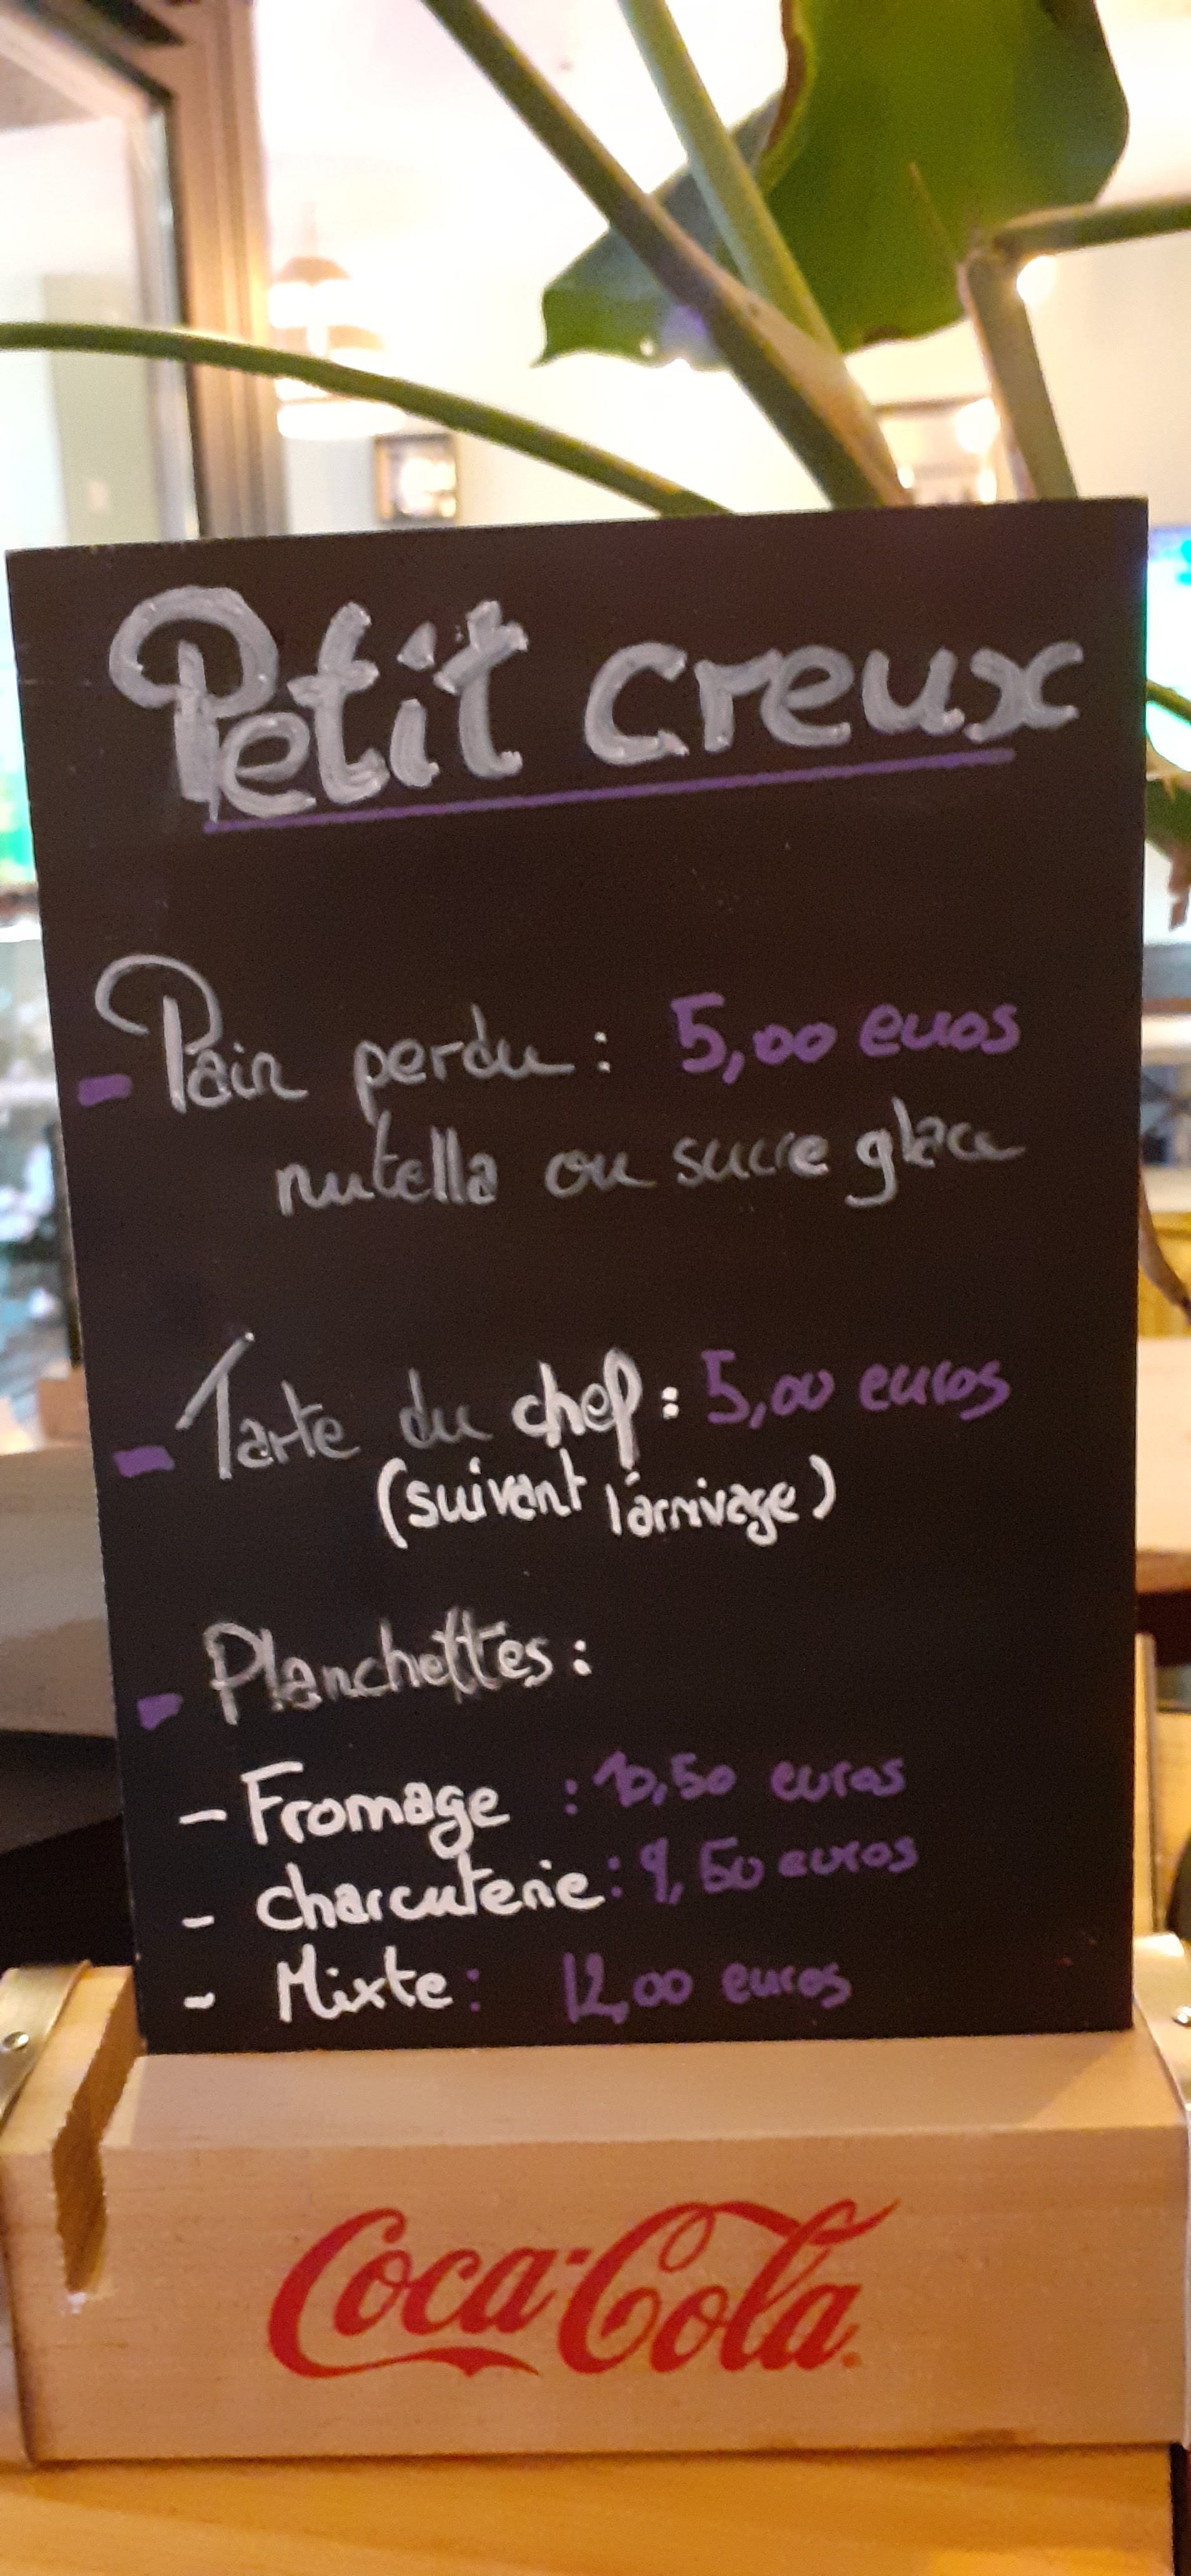 Petit creux
- Pain perdu : 5,00 euros
nutella ou sucre glace
- Tarte du chef : 5,00 euros
(suivant l'arrivage)
- Planchettes :
- Fromage : 10,50 euros
- charcuterie : 9,50 euros
- Mixte : 12,00 euros
Coca-Cola